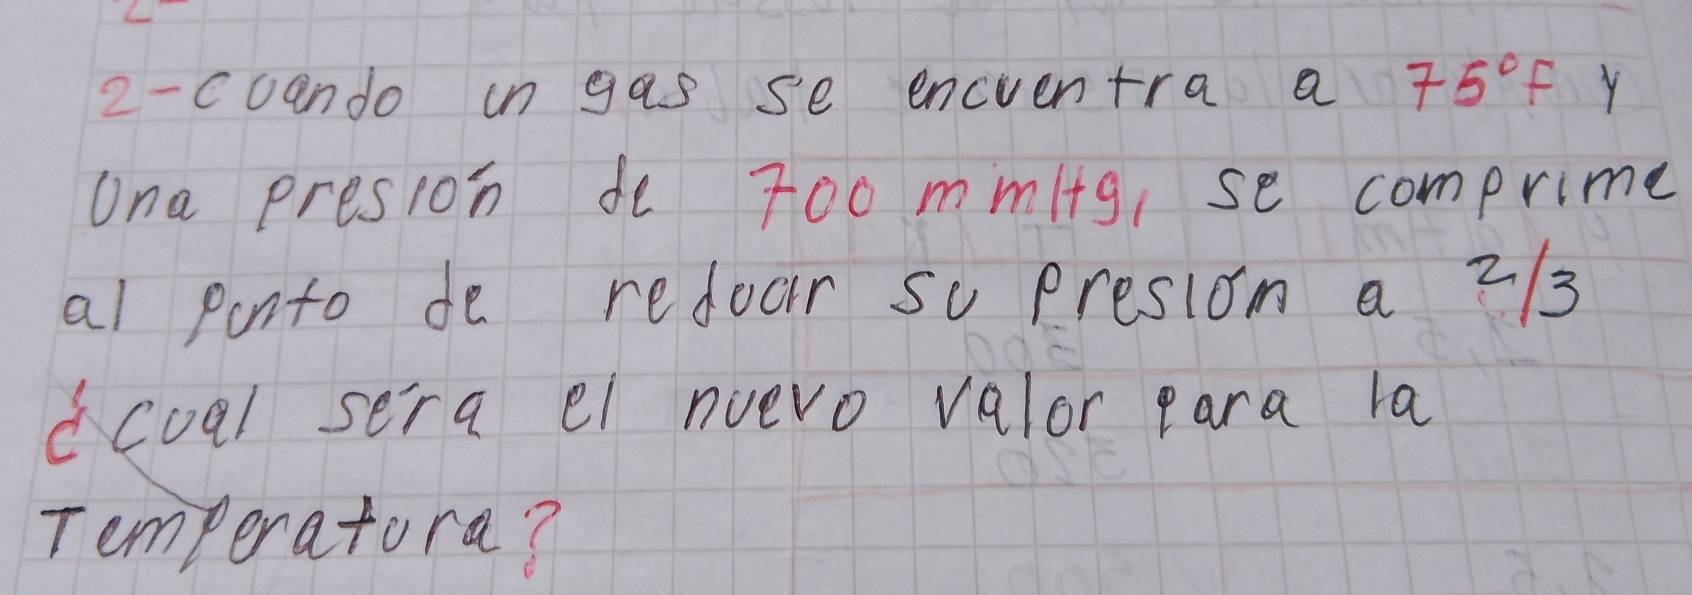 2-cuando un gas se encuentra a 75°F y
una presión de 700 mmHg, se comprime
al punto de reducir su presión a 2/3
¿cual será el nuevo valor para la
Temperatura?